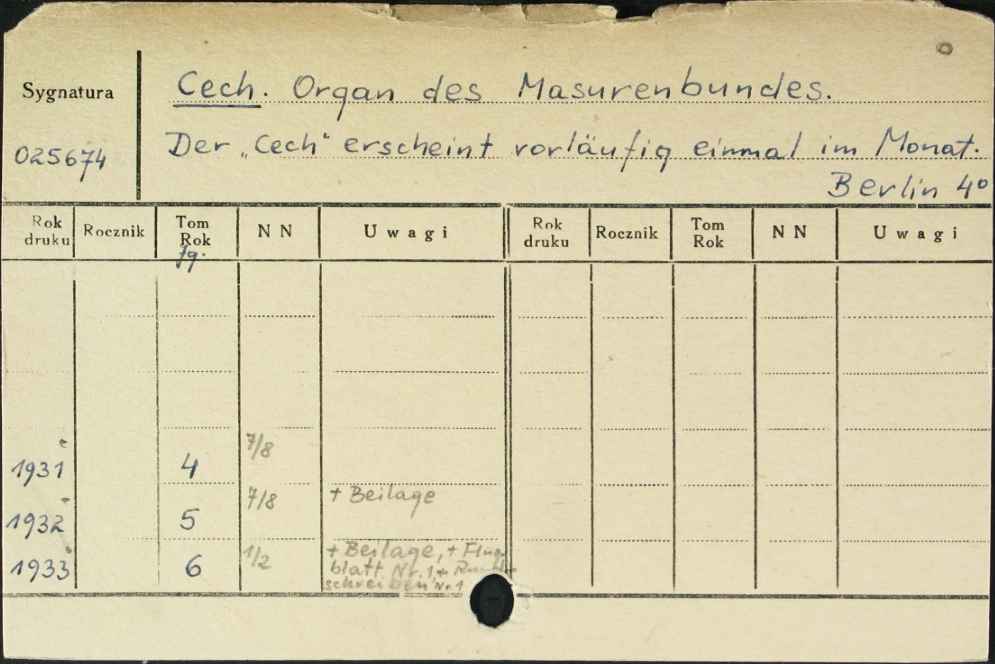 Sygnatura
Cech. Organ des Masurenbundes.
025674
Der „Cech“ erscheint vorläufig einmal im Monat.
Berlin 4°
Rok druku Rocznik Tom Rok NN Uwagi Rok druku Rocznik Tom Rok NN Uwagi
Jg.
1931 4 7/8
1932 5 7/8 + Beilage
1933 6 1/2 + Beilage, + Flug
blatt Nr. 1 + Rund-
schreiben Nr 1